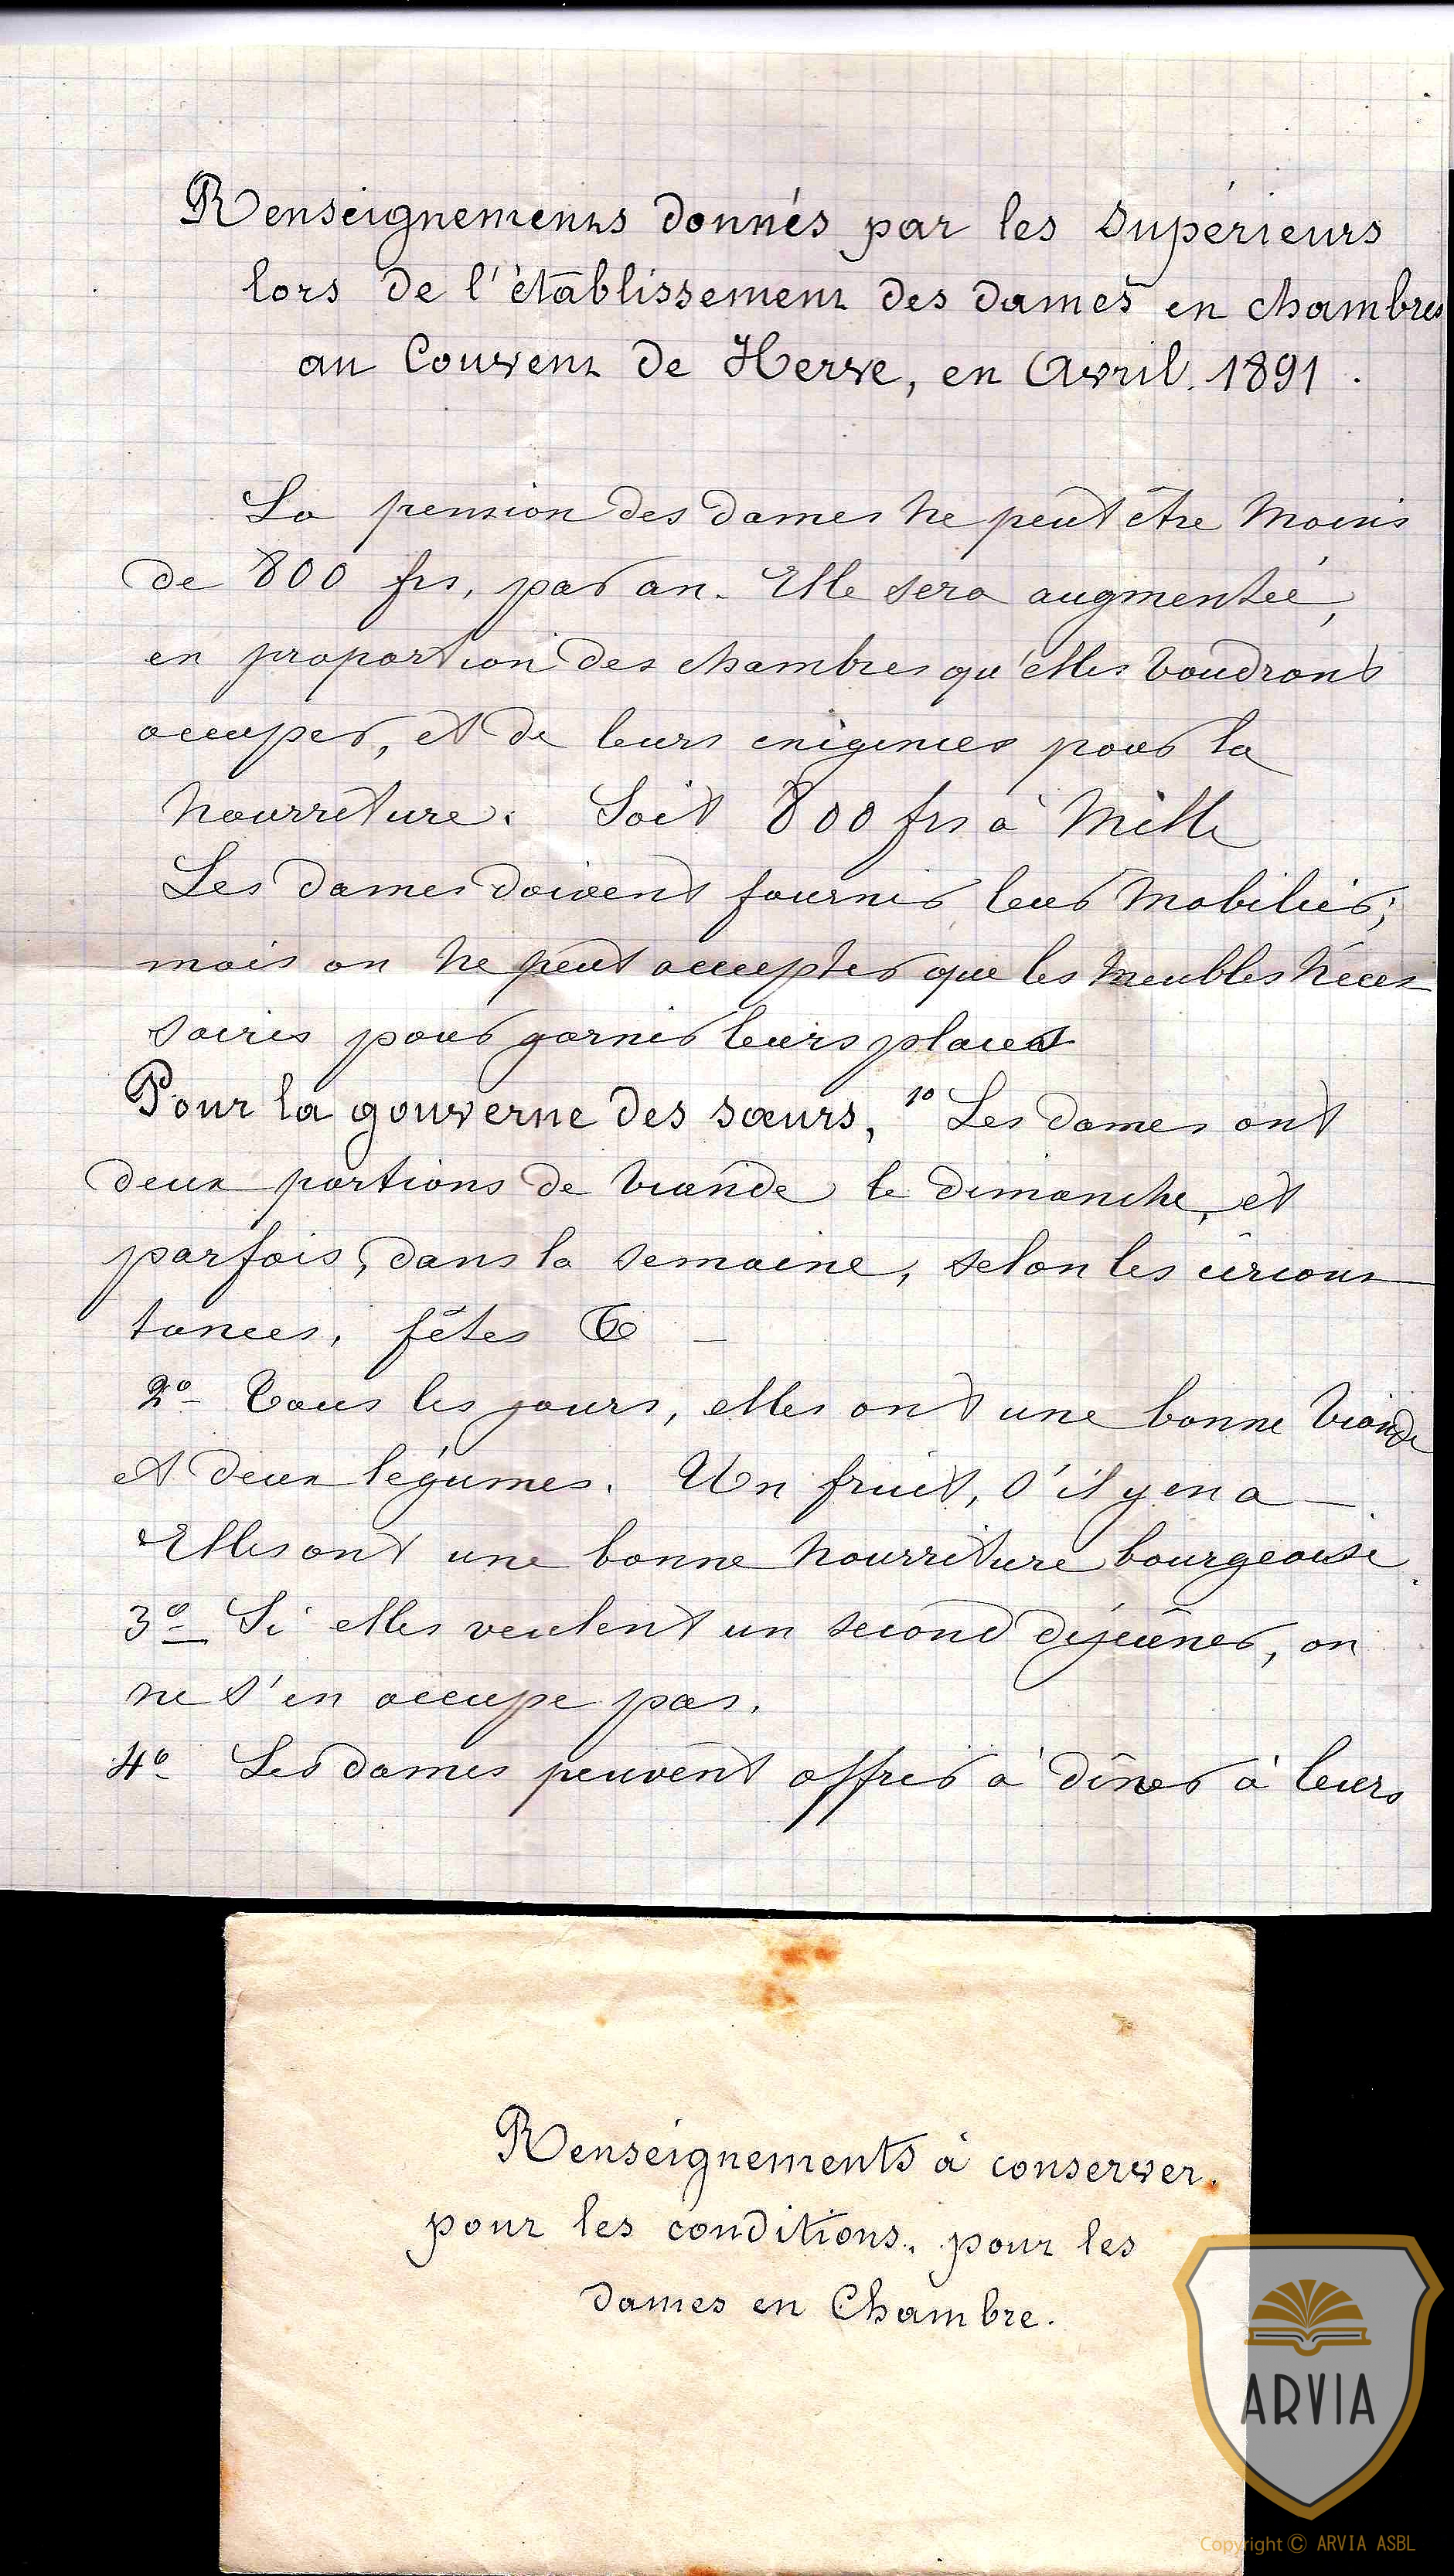 Renseignements donnés par les Supérieurs
lors de l'établissement des dames en chambres
au Couvent de Herve, en Avril. 1891.
La pension des dames ne peut être moins
de 800 frs, par an. Elle sera augmentée,
en proportion des chambres qu'elles voudront
occuper, et de leurs exigences pour la
nourriture. Soit 800 frs à Mille
Les dames doivent fournir leur mobilier;
mais on ne peut accepter que les meubles néces
saires pour garnir leurs places
Pour la gouverne des sœurs, 1º Les dames ont
deux portions de viande le dimanche, et
parfois, dans la semaine, selon les circons
tances, fêtes &
2º- Tous les jours, elles ont une bonne viande
et deux légumes. Un fruit, s'il y en a —
Elles ont une bonne nourriture bourgeoise.
3º- Si elles veulent un second déjeûner, on
ne s'en occupe pas.
4º- Les dames peuvent offrir à dîner à leurs
Renseignements à conserver.
pour les conditions, pour les
dames en Chambre.
ARVIA
Copyright © ARVIA ASBL